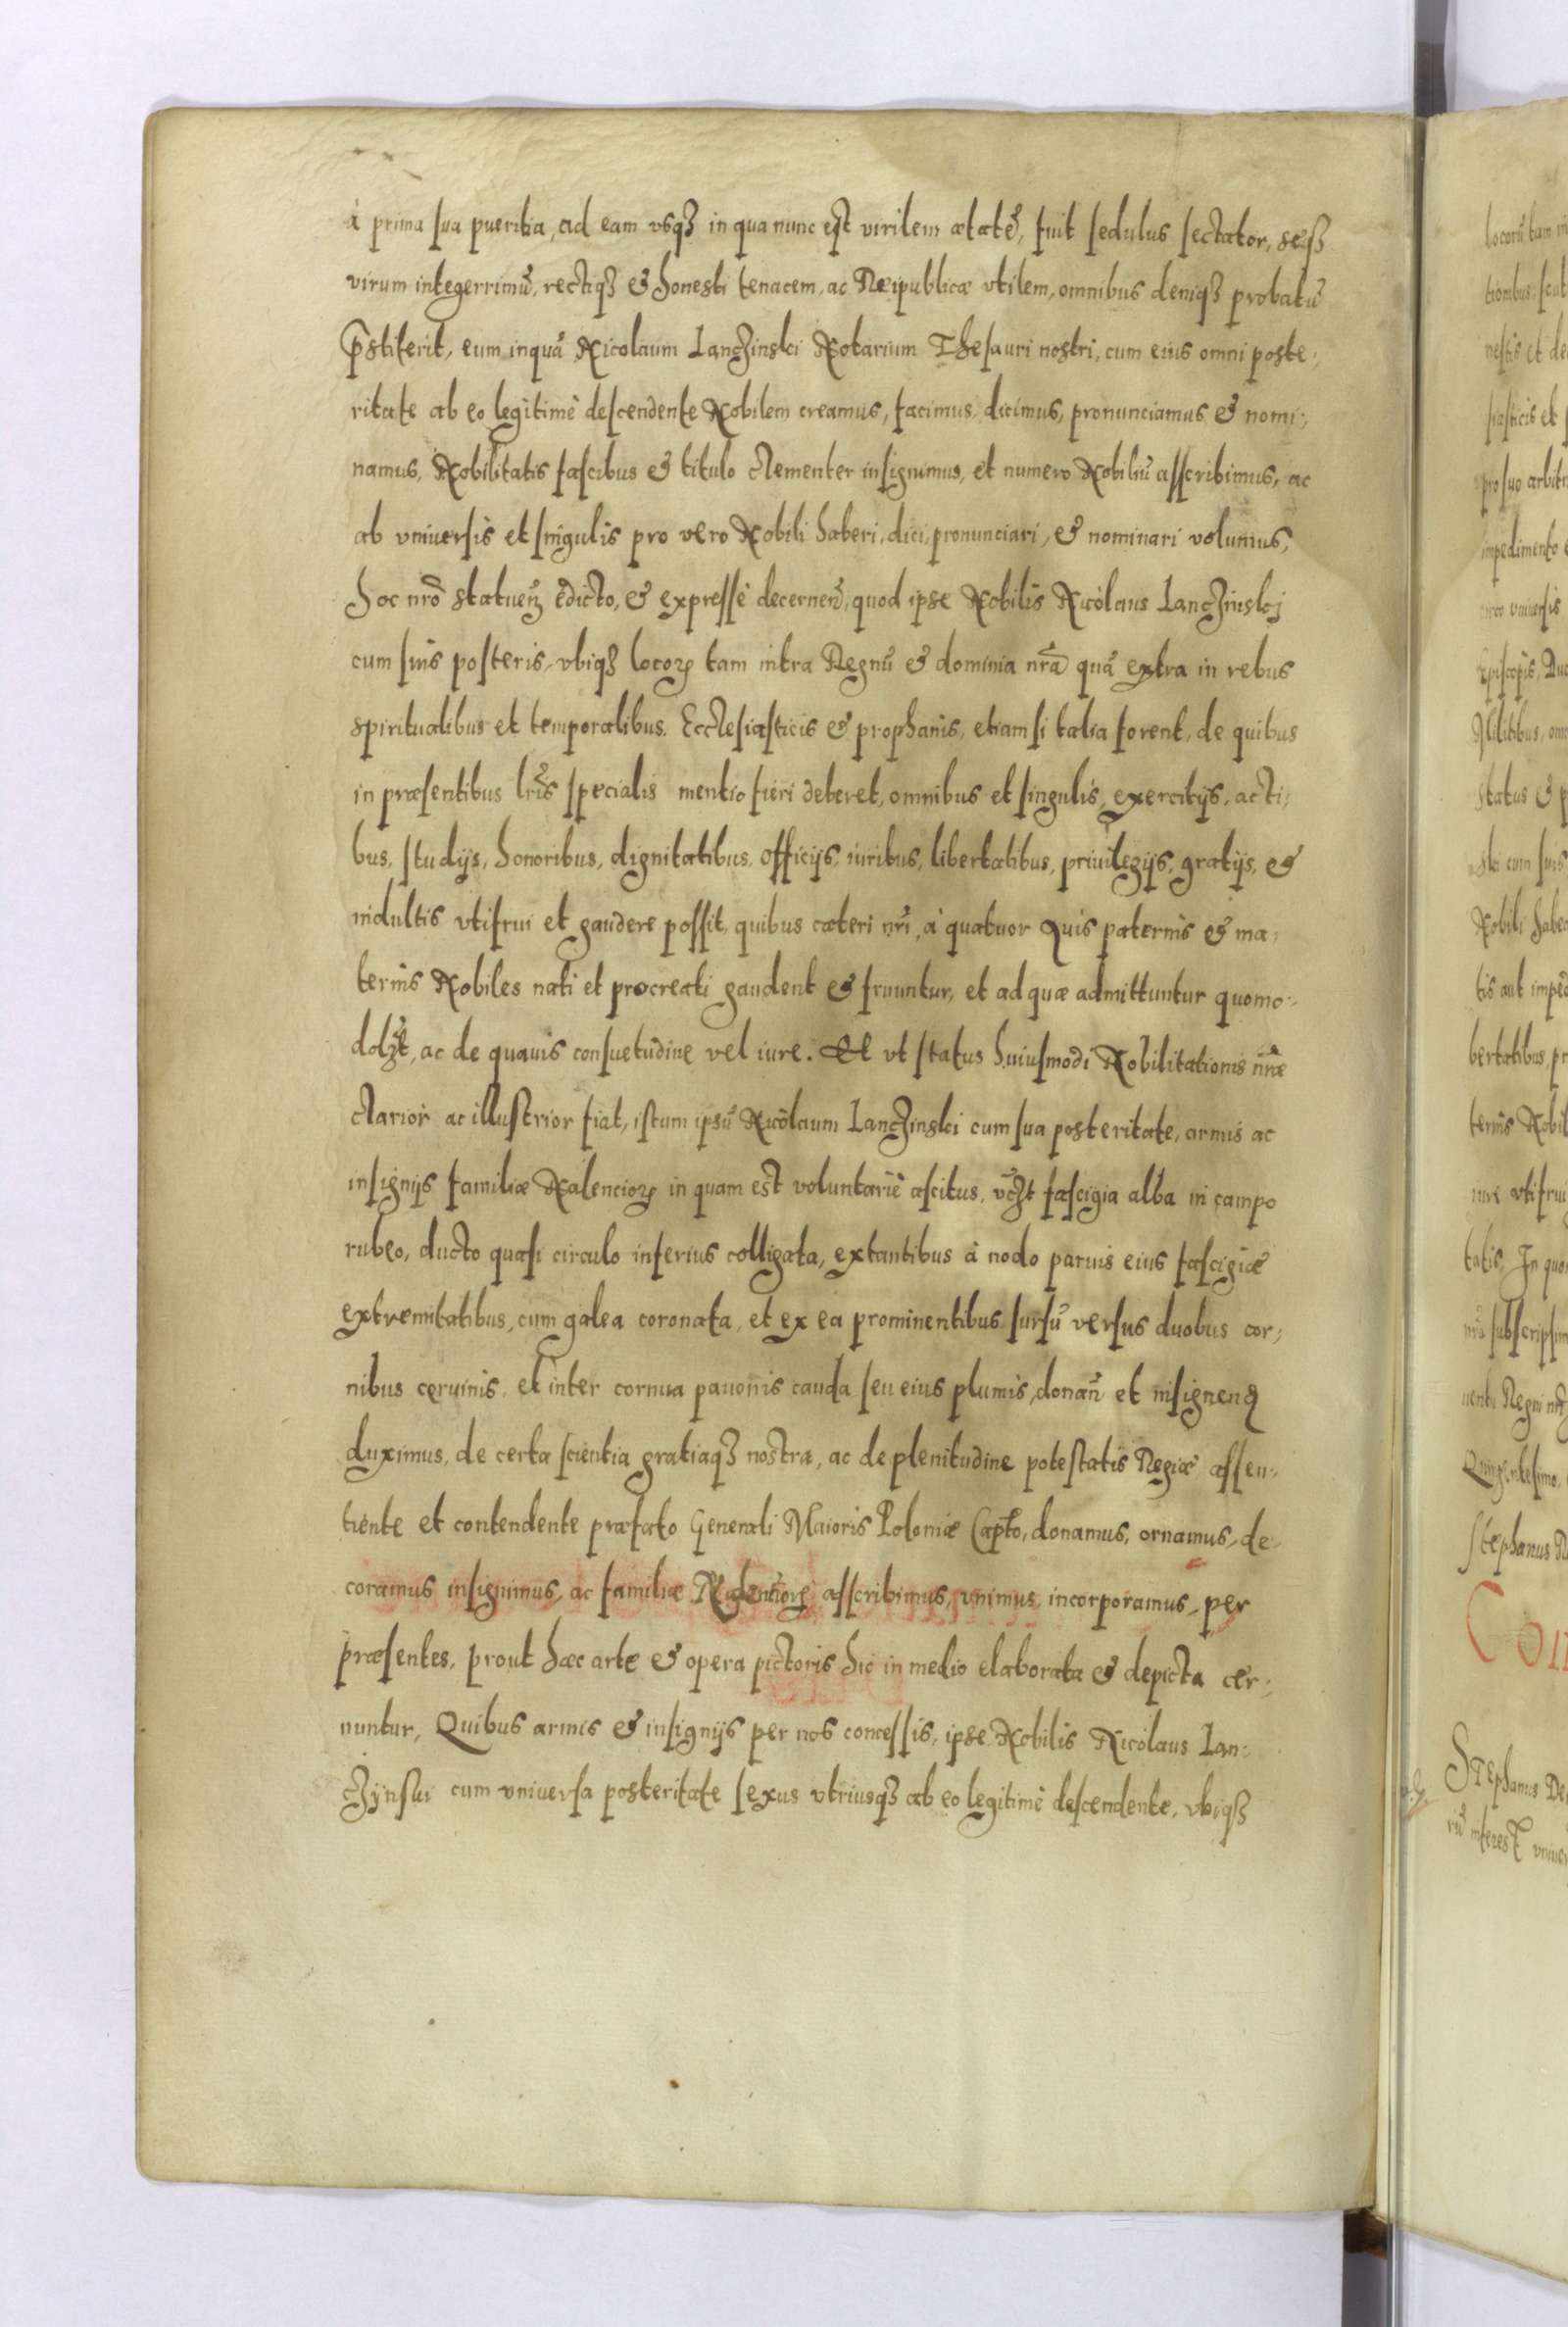 à prima sua pueritia, ad eam vsqʒ in qua nunc est virilem ætatē, fuit sedulus sectator, seqʒ
virum integerrimū, rectiqʒ & honesti tenacem, ac Reipublicæ vtilem, omnibus deniqʒ probatū
p̄stiterit, eum inquā Nicolaum Lanczinski Notarium Thesauri nostri, cum eius omni poste,
ritate ab eo legitimè descendente Nobilem creamus, facimus, dicimus, pronunciamus & nomi,
namus, Nobilitatis fascibus & titulo clementer insignimus, et numero Nobiliū asscribimus, ac
ab vniuersis et singulis pro vero Nobili haberi, dici, pronunciari, & nominari volumus,
hoc nrō statueñ edicto, & expressè decerneñ, quod ipse Nobilis Nicolaus Lanczinskj
cum suis posteris, vbiqʒ locoꝝ tam intra Regnū & dominia nrā quā extra in rebus
spiritualibus et temporalibus. Ecclesiasticis & prophanis, etiam si talia forent, de quibus
in præsentibus lris̄ specialis mentio fieri deberet, omnibus et singulis, exercitijs, acti,
bus, studijs, honoribus, dignitatibus, officijs, iuribus, libertatibus, priuilegijs, gratijs, &
indultis vtifrui et gaudere possit, quibus cæteri nrī, à quatuor Quis paternis & ma,
ternis Nobiles nati et procreati gaudent & fruuntur, et ad quæ admittuntur quomo,
dolʒt, ac de quauis consuetudine vel iure. Et vt status huiusmodi Nobilitationis nrǣ
clarior ac illustrior fiat, istum ipsū Nicolaum Lanczinski cum sua posteritate, armis ac
insignijs familiæ Nalencioꝝ in quam est voluntariè ascitus, vcʒt fascigia alba in campo
rubeo, ducto quasi circulo inferius colligata, extantibus à nodo paruis eius fascigiæ
extremitatibus, cum galea coronata, et ex ea prominentibus sursū versus duobus cor,
nibus ceruinis, et inter cornua pauonis cauda seu eius plumis, donañ et insignenđ
duximus, de certa scientia gratiaqʒ nostra, ac de plenitudine potestatis Regiæ assen,
tiente et contendente præfato Generali Maioris Poloniæ Capto, donamus, ornamus, de,
coramus insignimus, ac familiæ Nalencioꝝ asscribimus, vnimus, incorporamus, per
præsentes, prout hæc arte & opera pictoris hic in medio elaborata & depicta cer,
nuntur, Quibus armis & insignijs per nos concessis, ipse Nobilis Nicolaus Lan,
czynski cum vniuersa posteritate sexus vtriusqʒ ab eo legitimè descendente, vbiqʒ